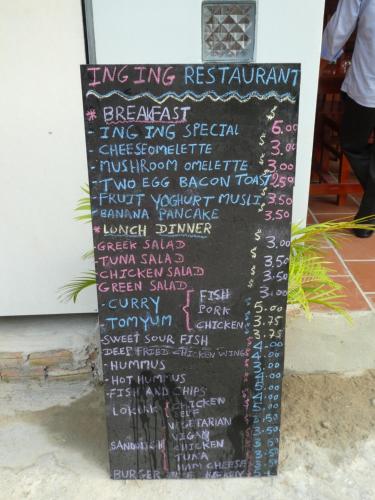 ING ING RESTAURANT
* BREAKFAST $
- ING ING SPECIAL $ 6.00
- CHEESEOMELETTE $ 3.00
- MUSHROOM OMELETTE $ 3.00
- TWO EGG BACON TOAST
- FRUIT YOGHURT MUSLI $ 3.50
- BANANA PANCAKE 3.50
* LUNCH DINNER
- GREEK SALAD $ 3.00
TUNA SALAD $ 3.50
CHICKEN SALAD $ 3.50
GREEN SALAD $ 3.00
- CURRY { FISH 5.00
- TOMYUM PORK 3.75
CHICKEN 3.75
- SWEET SOUR FISH
DEEP FRIED CHICKEN WINGS
- HUMMUS
- HOT HUMMUS
- FISH AND CHIPS
- LOKLOK CHICKEN
BEEF
VEGETARIAN
VIGAN
SANDWICH CHICKEN
TUNA
HAM CHEESE
BURGER